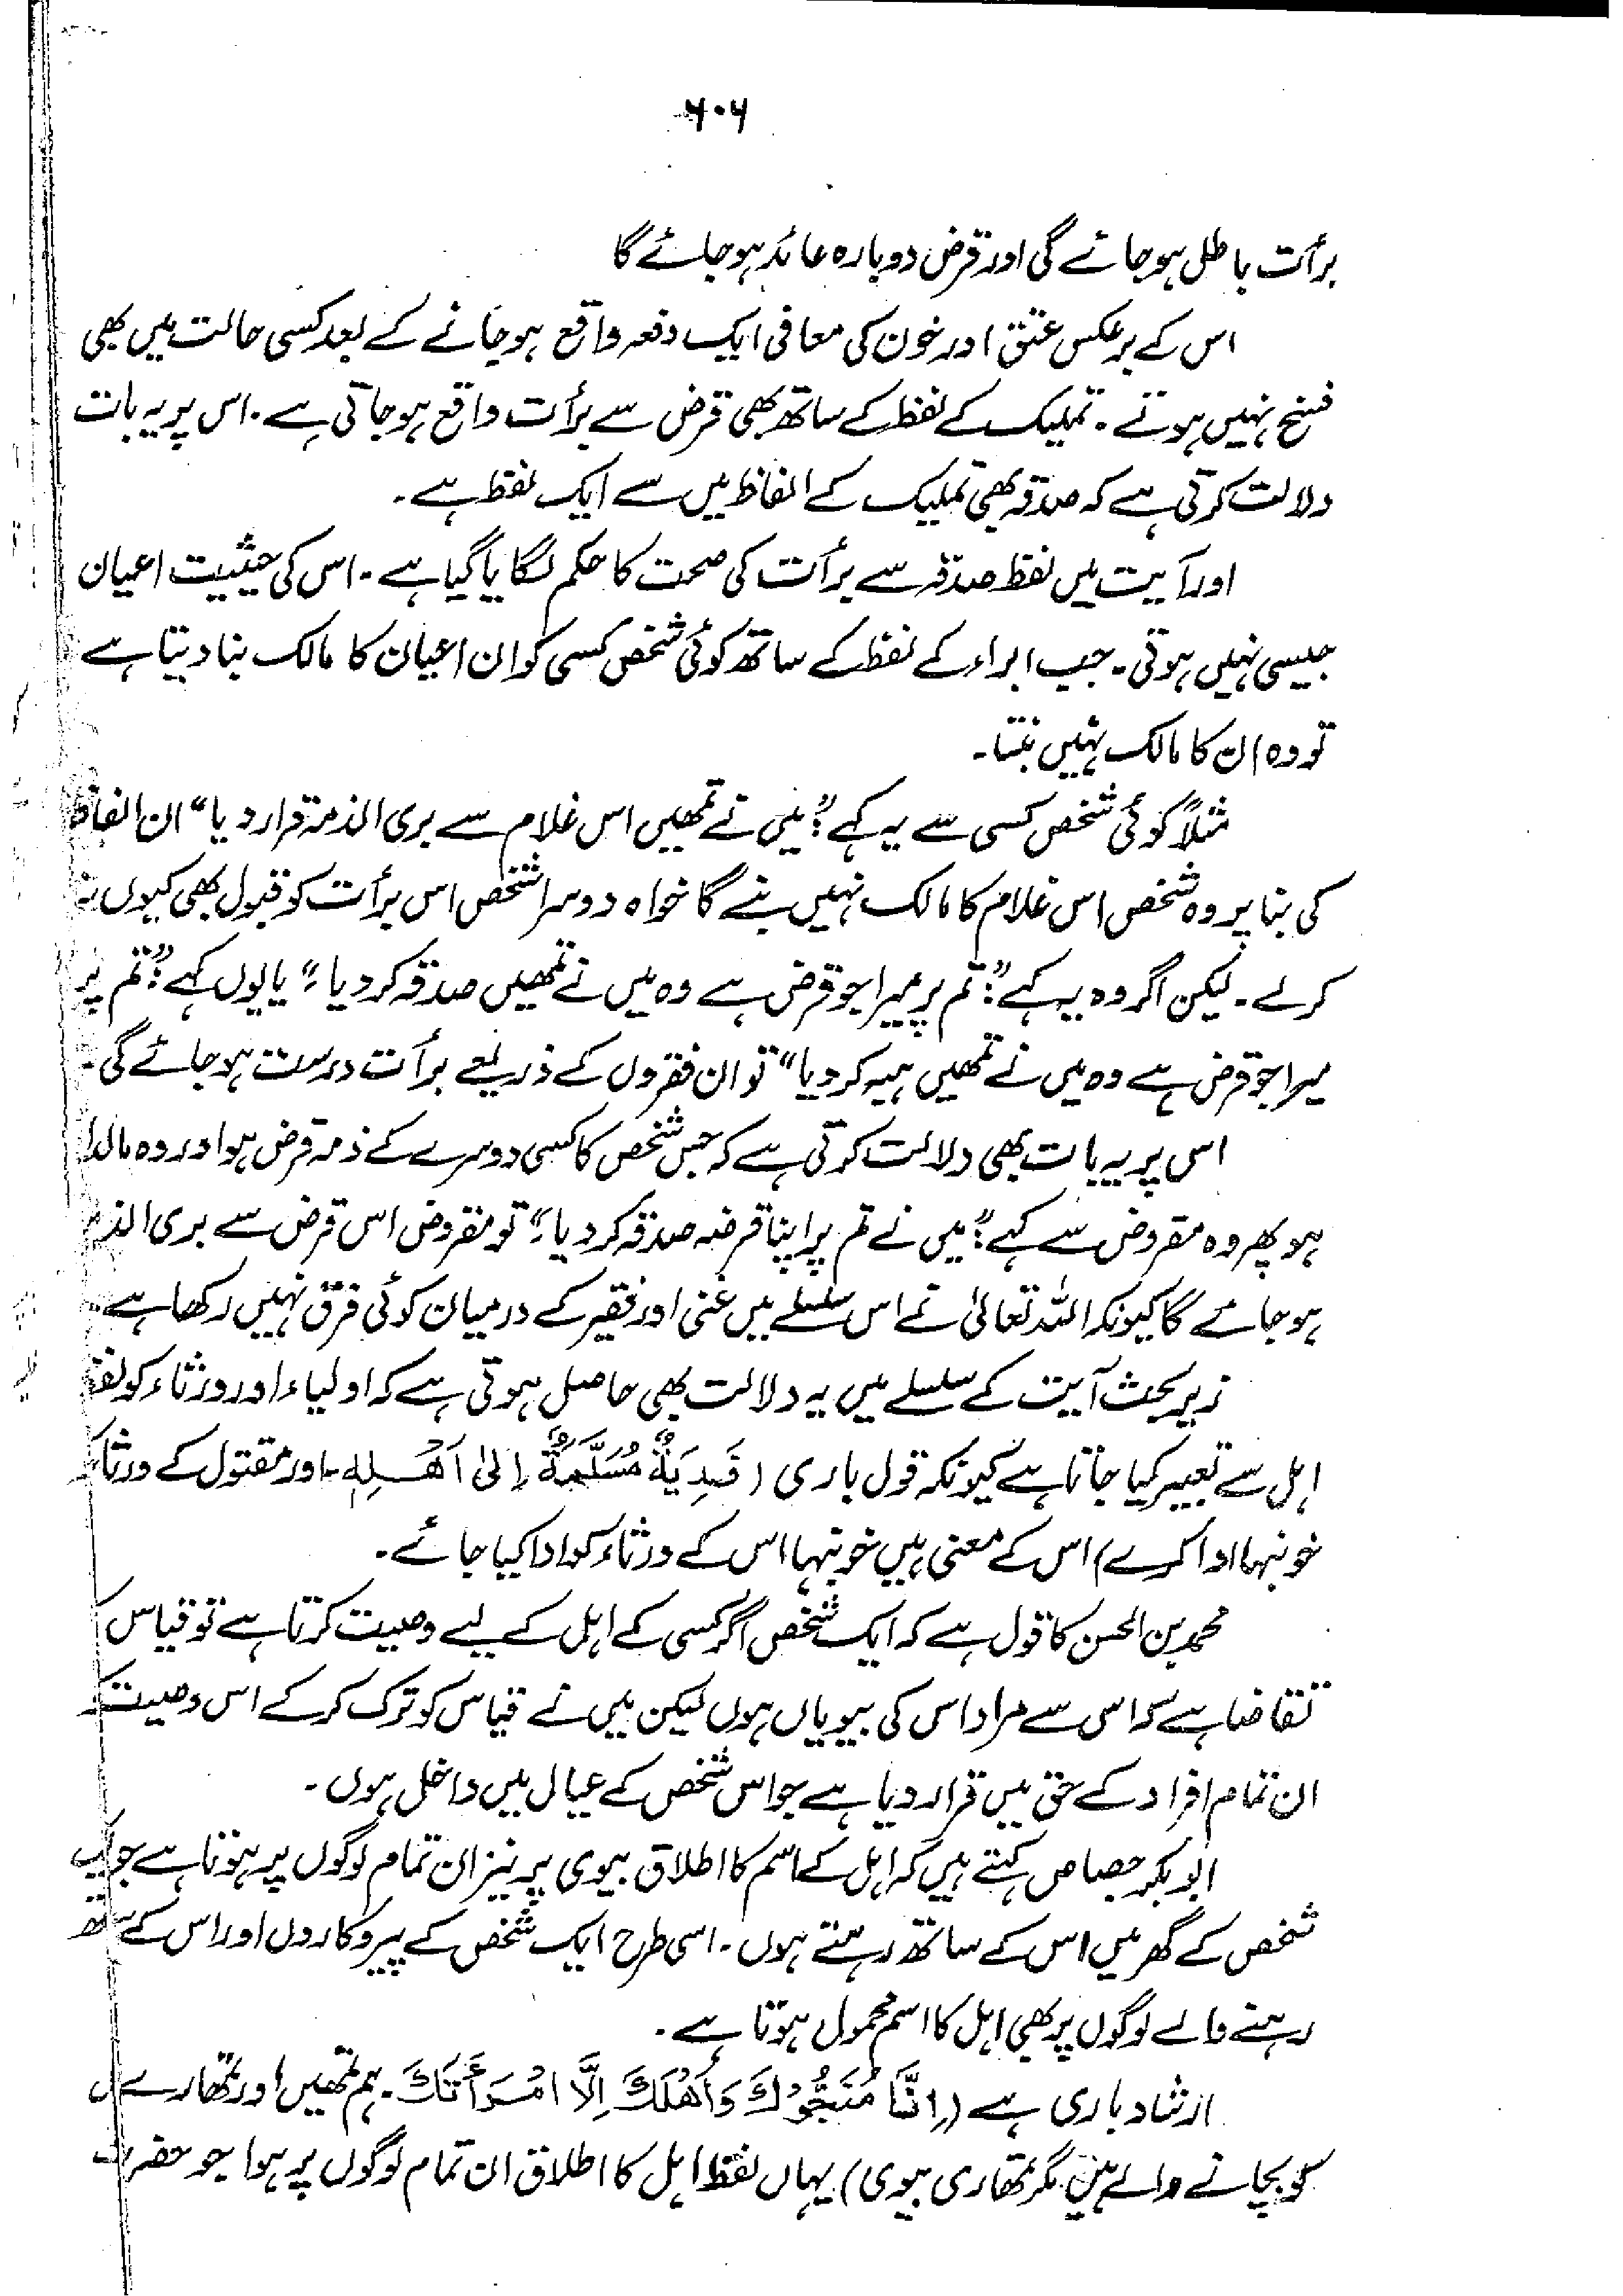 ۶۰۶
برأت باطل ہو جائے گی اور قرض دوبارہ عائد ہو جائے گا
اس کے برعکس عتق اور خون کی معافی ایک دفعہ واقع ہو جانے کے بعد کسی حالت میں بھی
فسخ نہیں ہوتے۔ تملیک کے لفظ کے ساتھ بھی قرض سے برأت واقع ہو جاتی ہے۔ اس پر یہ بات
دلالت کرتی ہے کہ صدقہ بھی تملیک کے الفاظ میں سے ایک لفظ ہے۔
اور آیت میں لفظ صدقہ سے برأت کی صحت کا حکم لگایا گیا ہے۔ اس کی حیثیت اعیان
جیسی نہیں ہوتی۔ جب ابراء کے لفظ کے ساتھ کوئی شخص کسی کو ان اعیان کا مالک بنا دیتا ہے
تو وہ ان کا مالک نہیں بنتا۔
مثلاً کوئی شخص کسی سے یہ کہے: "میں نے تمھیں اس غلام سے بری الذمہ قرار دیا" ان الفاظ
کی بنا پر وہ شخص اس غلام کا مالک نہیں بنے گا خواہ دوسرا شخص اس برأت کو قبول بھی کیوں نہ
کرلے۔ لیکن اگر وہ یہ کہے: "تم پر میرا جو قرض ہے وہ میں نے تمھیں صدقہ کر دیا،" یا یوں کہے: "تم پر
میرا جو قرض ہے وہ میں نے تمھیں ہبہ کر دیا" تو ان فقروں کے ذریعے برأت درست ہو جائے گی۔
اس پر یہ بات بھی دلالت کرتی ہے کہ جس شخص کا کسی دوسرے کے ذمہ قرض ہو اور وہ مالدا
ہو پھر وہ مقروض سے کہے: "میں نے تم پر اپنا قرضہ صدقہ کر دیا،" تو مقروض اس قرض سے بری الذم
ہو جائے گا کیونکہ اللہ تعالیٰ نے اس سلسلے میں غنی اور فقیر کے درمیان کوئی فرق نہیں رکھا ہے
زیر بحث آیت کے سلسلے میں یہ دلالت بھی حاصل ہوتی ہے کہ اولیاء اور ورثاء کو لفظ
اہل سے تعبیر کیا جاتا ہے کیونکہ قول باری (فَدِيَةٌ مُّسَلَّمَةٌ إِلىٰ اَهْلِهٖ۔ اور مقتول کے ورثاء
خونبہا ادا کرے) اس کے معنی ہیں خونبہا اس کے ورثاء کو ادا کیا جائے۔
محمد بن الحسن کا قول ہے کہ ایک شخص اگر کسی کے اہل کے لیے وصیت کرتا ہے تو قیاس
تقاضا ہے کہ اس سے مراد اس کی بیویاں ہوں لیکن میں نے قیاس کو ترک کر کے اس وصیت
ان تمام افراد کے حق میں قرار دیا ہے جو اس شخص کے عیال میں داخل ہوں۔
ابوبکر جصاص کہتے ہیں کہ اہل کے اسم کا اطلاق بیوی پر نیز ان تمام لوگوں پر ہوتا ہے جو
شخص کے گھر میں اس کے ساتھ رہتے ہوں۔ اسی طرح ایک شخص کے پیروکاروں اور اس کے ساتھ
رہنے والے لوگوں پر بھی اہل کا اسم محمول ہوتا ہے۔
ارشاد باری ہے (اِنَّا مُنَجُّوْكَ وَأَهْلَكَ اِلَّا امْرَأَتَكَ۔ ہم تمھیں اور تمھارے
کو بچانے والے ہیں مگر تمھاری بیوی) یہاں لفظ اہل کا اطلاق ان تمام لوگوں پر ہوا جو حضرت